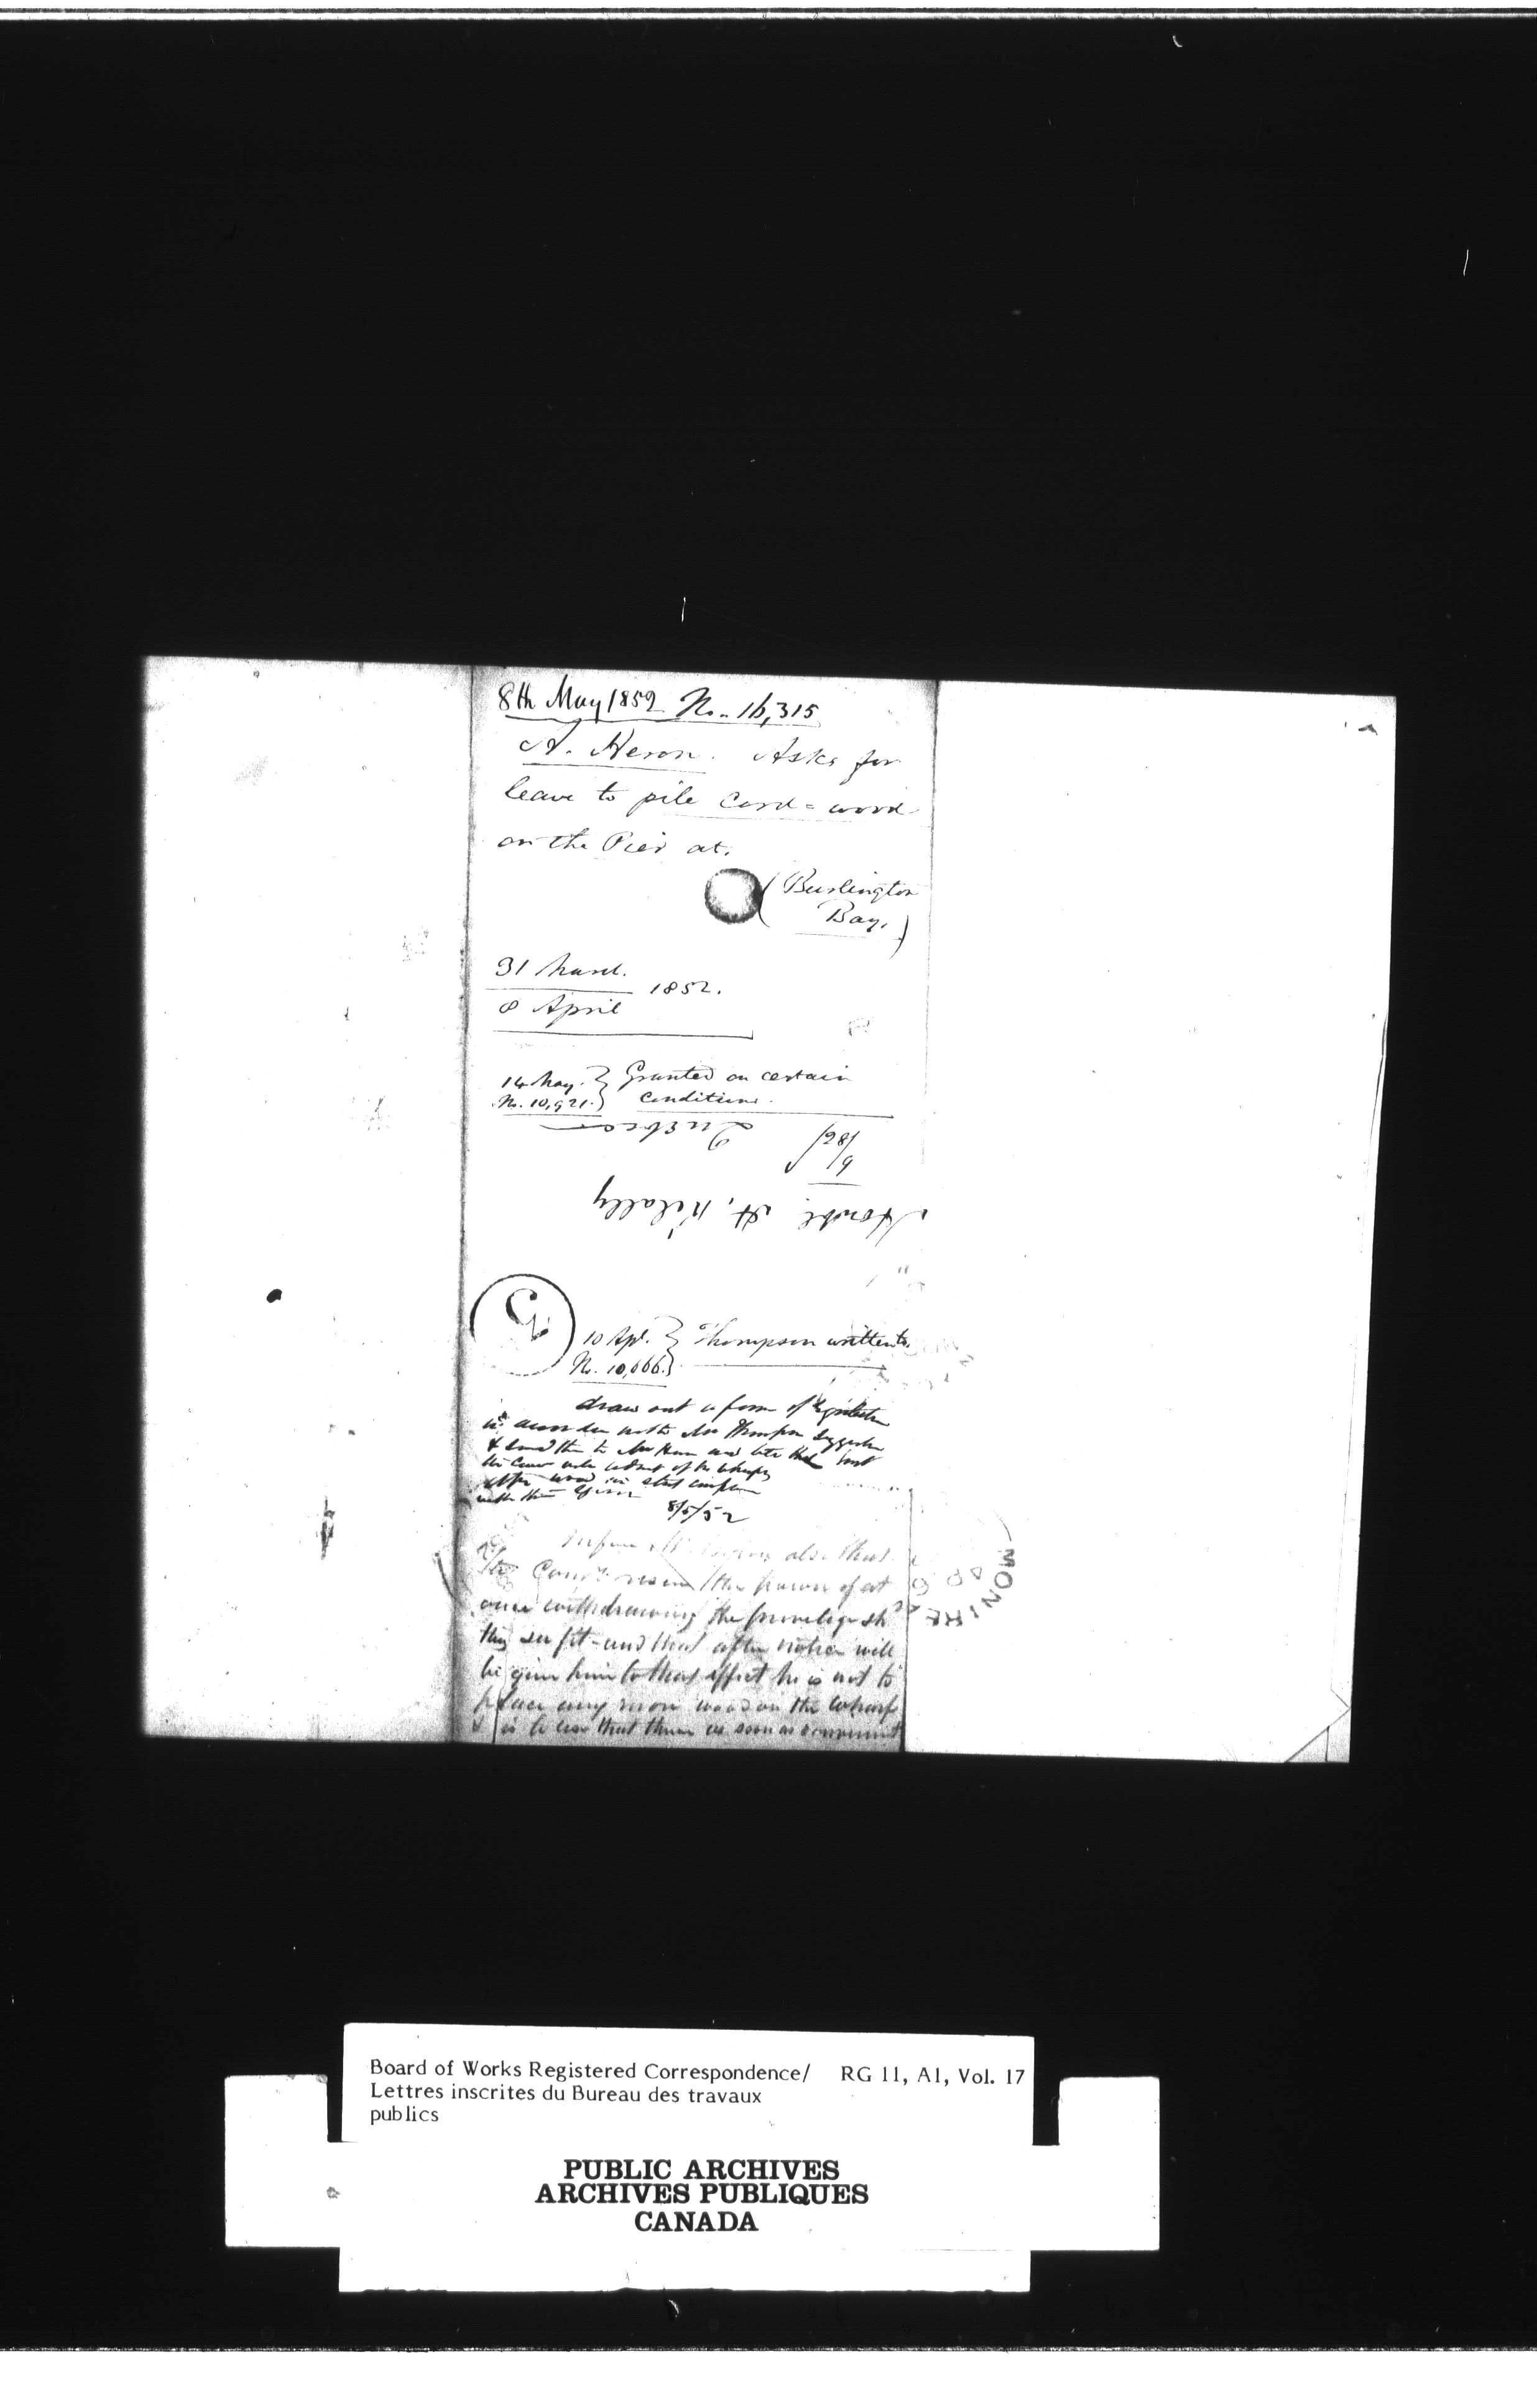 8th May 1852 No. 16,315
A. Heron. Asks for
leave to pile Cord=wood
on the Pier at.
(Burlington
Bay.)
31 March.
8 April
1852.
14 May. } Granted on certain
No. 10,921. } Conditions.
Quebec
Honble H. Killaly
5
10 Apl. } Thompson written to.
No. 10,666. }
draw out a form of
in with Mr Thompson
& send to Mr and
of the wharf
wood in strict
with the
8/5/52
also that
the power of at
once withdrawing the privelige shd
they see fit - and that after notice will
be given him to that effect he is not to
place any more wood on the wharf
& is to that there as soon as convenient
MONTRE
Board of Works Registered Correspondence/ RG 11, A1, Vol. 17
Lettres inscrites du Bureau des travaux
publics
PUBLIC ARCHIVES
ARCHIVES PUBLIQUES
CANADA